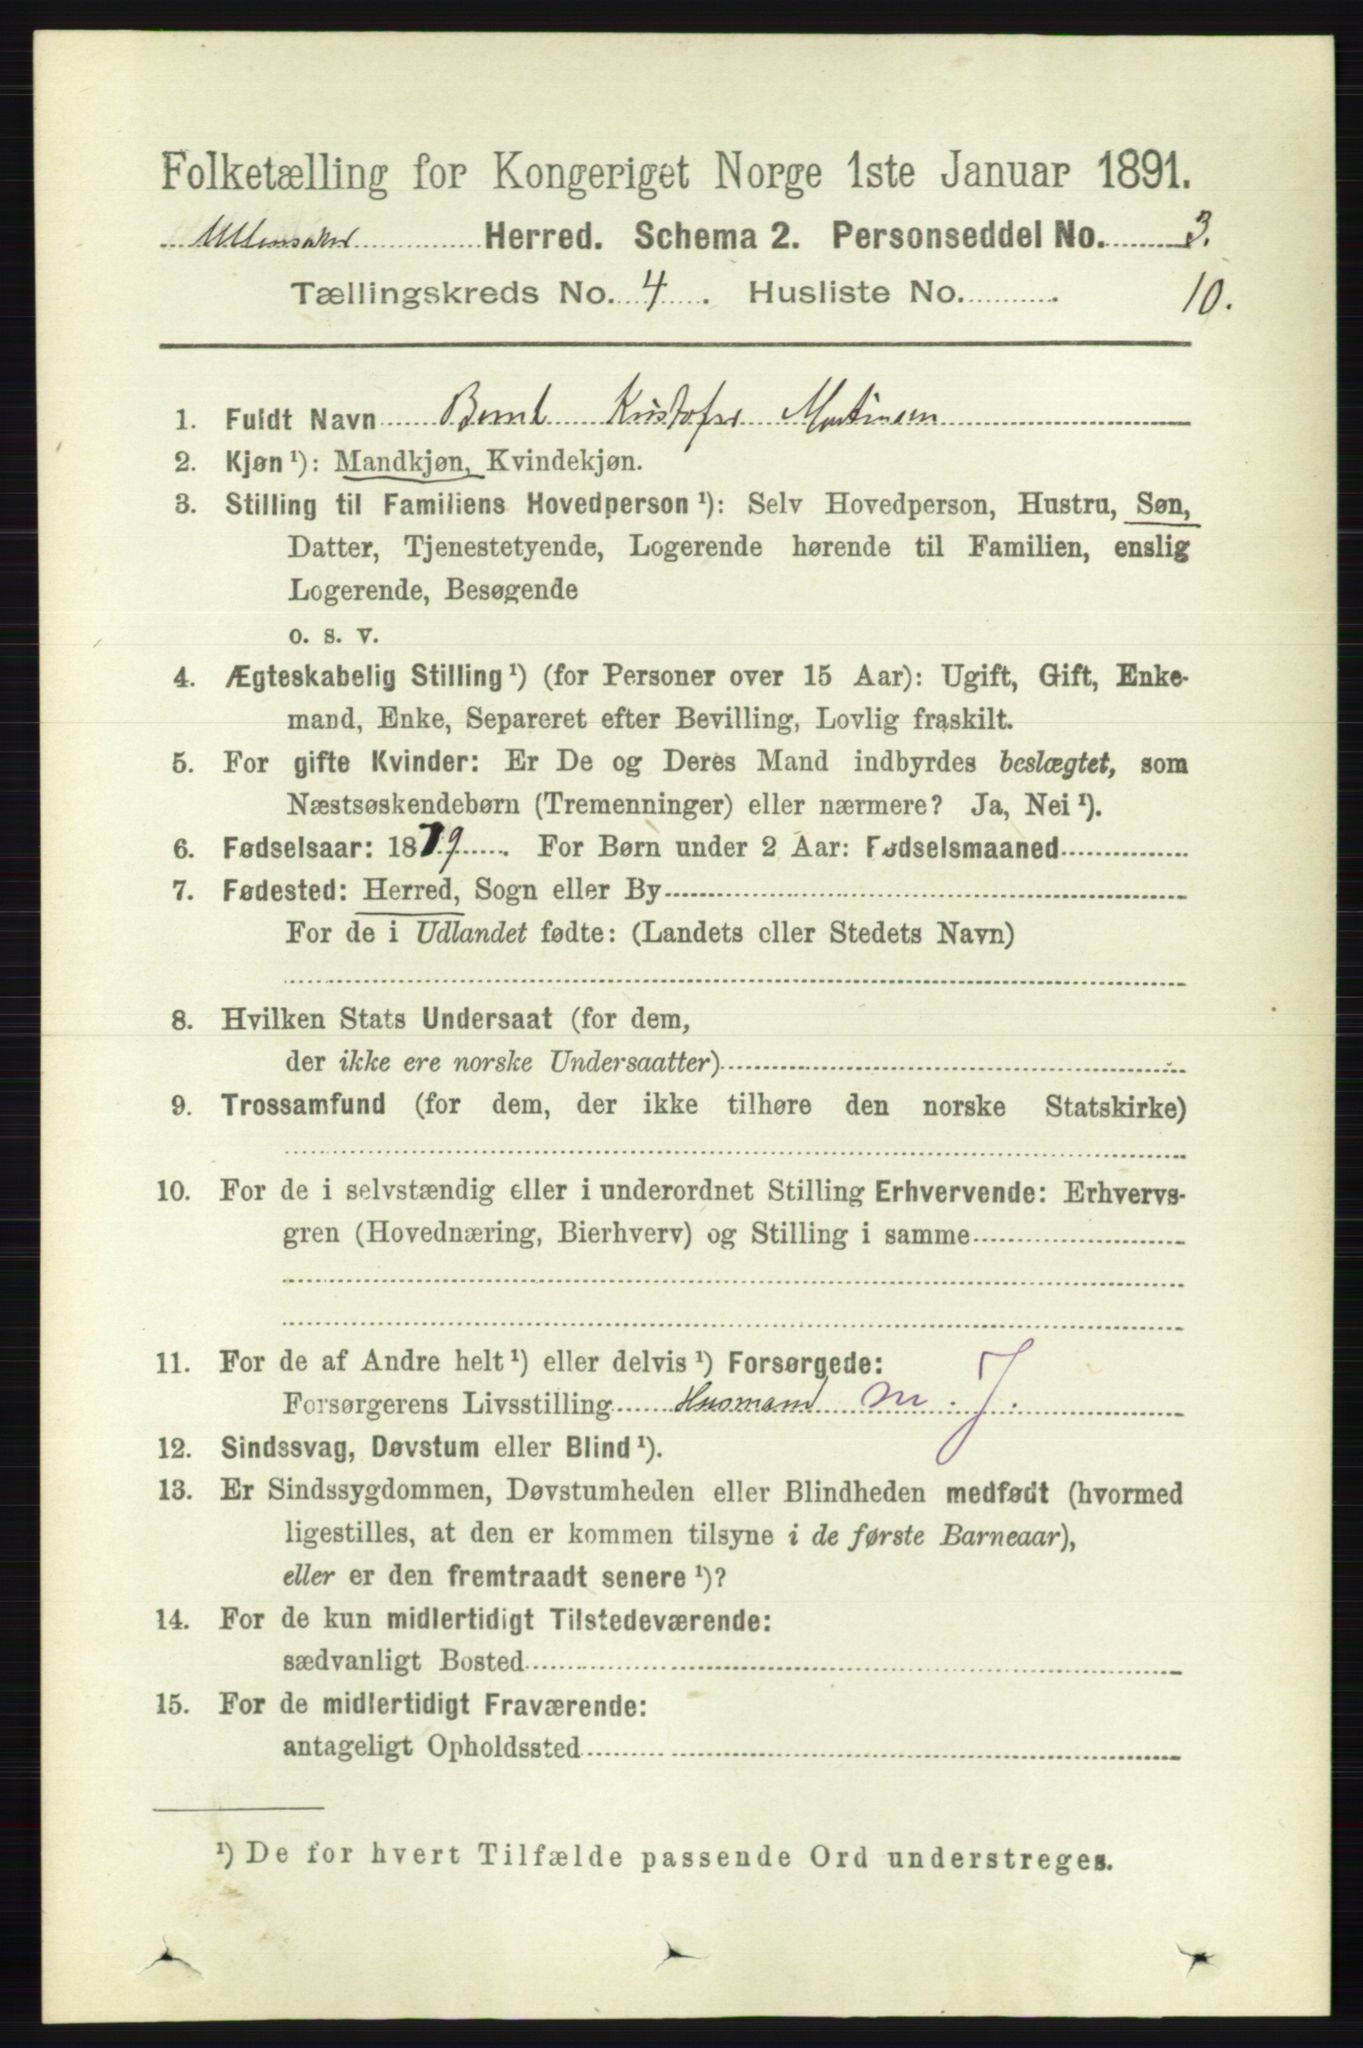 Folketælling for Kongeriget Norge 1ste Januar 1891.
Ullensaker Herred. Schema 2. Personseddel No. 3.
Tællingskreds No. 4. Husliste No. 10.
1. Fuldt Navn Bernt Kristofer Martinsen
2. Kjøn ¹): Mandkjøn, Kvindekjøn.
3. Stilling til Familiens Hovedperson ¹): Selv Hovedperson, Hustru, Søn,
Datter, Tjenestetyende, Logerende hørende til Familien, enslig
Logerende, Besøgende
o. s. v.
4. Ægteskabelig Stilling ¹) (for Personer over 15 Aar): Ugift, Gift, Enke-
mand, Enke, Separeret efter Bevilling, Lovlig fraskilt.
5. For gifte Kvinder: Er De og Deres Mand indbyrdes beslægtet, som
Næstsøskendebørn (Tremenninger) eller nærmere? Ja, Nei ¹).
6. Fødselsaar: 1879. For Børn under 2 Aar: Fødselsmaaned
7. Fødested: Herred, Sogn eller By
For de i Udlandet fødte: (Landets eller Stedets Navn)
8. Hvilken Stats Undersaat (for dem,
der ikke ere norske Undersaatter)
9. Trossamfund (for dem, der ikke tilhøre den norske Statskirke)
10. For de i selvstændig eller i underordnet Stilling Erhvervende: Erhvervs-
gren (Hovednæring, Bierhverv) og Stilling i samme
11. For de af Andre helt ¹) eller delvis ¹) Forsørgede:
Forsørgerens Livsstilling Husmand m. J.
12. Sindssvag, Døvstum eller Blind ¹).
13. Er Sindssygdommen, Døvstumheden eller Blindheden medfødt (hvormed
ligestilles, at den er kommen tilsyne i de første Barneaar),
eller er den fremtraadt senere ¹)?
14. For de kun midlertidigt Tilstedeværende:
sædvanligt Bosted
15. For de midlertidigt Fraværende:
antageligt Opholdssted
¹) De for hvert Tilfælde passende Ord understreges.